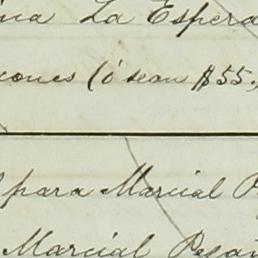 ina La Espera
iones (ó sean $55.
para Marcial P
Marcial Pesa